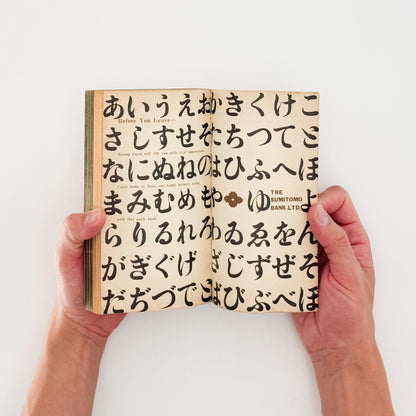 あいうえおかきくけこ
Before You Leave—
さしすせそたちつてと
Having Japan will fill you with vivid
なにぬねのはひふへほ
Carry home at least one happy memory
まみむめもやゆ THE SUMITOMO BANK, LTD. よ
with this guide book
らりるれろわゐゑをん
がぎぐげござじずぜぞ
だぢづでどばびぶべぼ